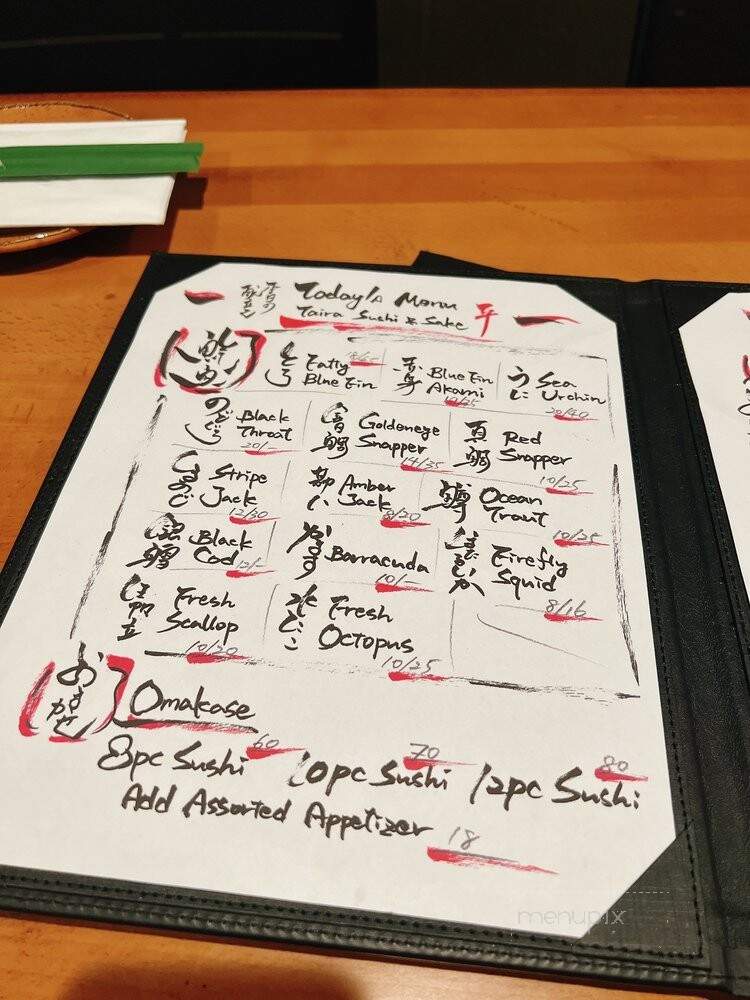 本日の献立 Today's Menu
Taira Sushi & Sake 平
とろ Fatty Blue Fin
赤身 Blue Fin Akami 12/25
うに Sea Urchin 20/40
のどぐろ Black Throat 20/-
金目鯛 Goldeneye Snapper 14/35
真鯛 Red Snapper 10/25
しまあじ Stripe Jack 12/30
勘八 Amber Jack 8/20
鱒 Ocean Trout 10/25
銀鱈 Black Cod 12/-
かます Barracuda 10/-
ほたるいか Firefly Squid 8/16
帆立 Fresh Scallop 10/20
水だこ Fresh Octopus 10/25
おまかせ Omakase
8pc Sushi 60 10pc Sushi 70 12pc Sushi 80
Add Assorted Appetizer 18
menupix